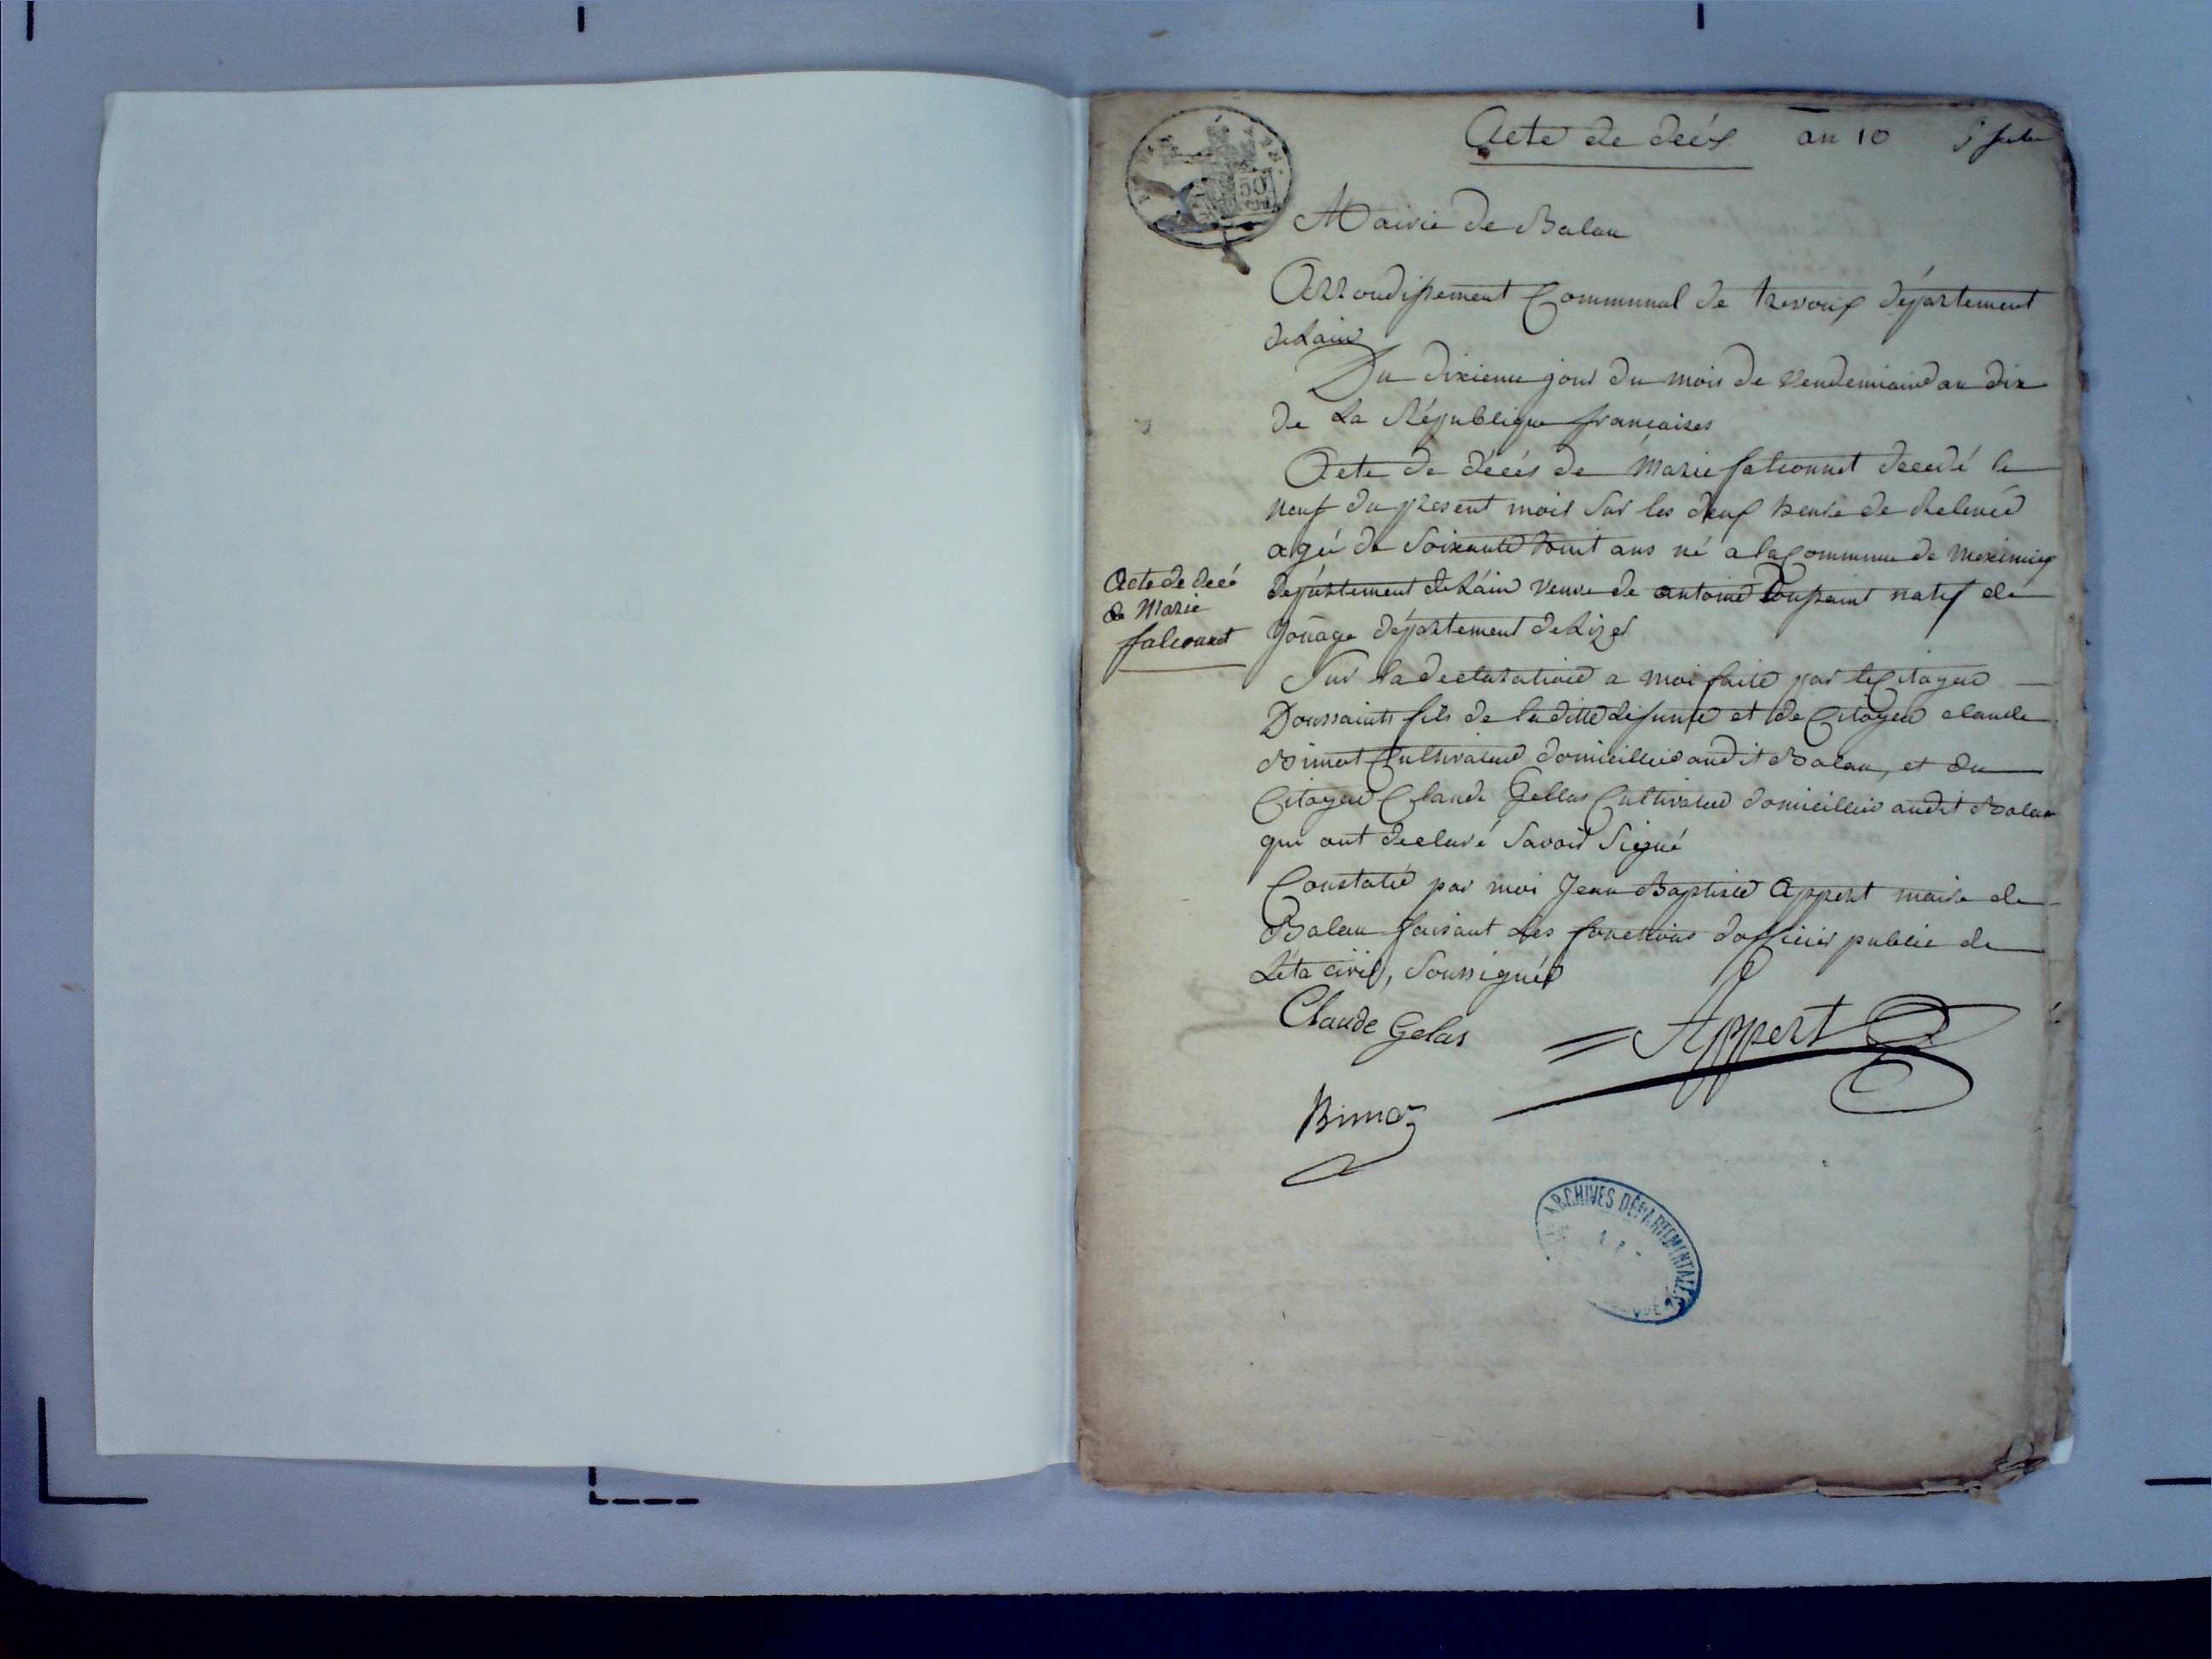 Acte de decés an 10
Mairie de Balan
Arrondissement Communal de trevoux département
de Lain
Du dixieme jour du mois de vendemiaire an dix
de La République francaises
Acte de décés de Marie falconnet decedé le
neuf du present mois Sur les deux heure de Relevée
agée de Soixante huit ans né a la Commune de Meximieux
département de Láin veuve de antoine Doussaint natif de
département de Lizer
Acte de decé
de Marie
falconnet
Sur la declaration a moi faite par le Citoyen
Doussaints fils de la ditte defunte et de Citoyen claude
Bimot Cultivateur domicillié audit Balan, et du
Citoyen Claude Gellas Cultivateur domicillié audit Balan
qui ont declaré Savoir Signé
Constaté par moi Jean Baptiste Appert maire de
Balan faisant Les fonctions dofficier public de
Léta civil, Soussignés
Claude Gelas
Appert
Bimoz
ARCHIVES DÉPARTEMENTALES